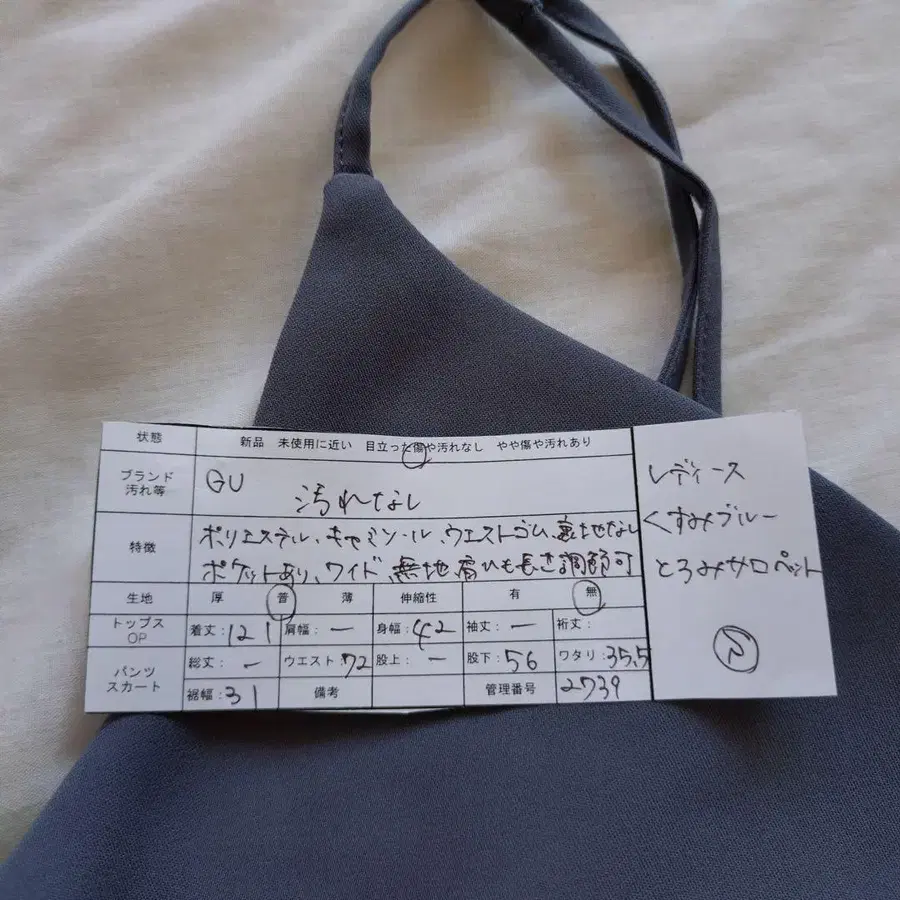 状態 新品 未使用に近い 目立った傷や汚れなし やや傷や汚れあり
ブランド
汚れ等
GU
汚れなし
特徴
ポリエステル、キャミソール、ウエストゴム、裏地なし
ポケットあり、ワイド、無地 肩ひも長さ調節可
生地 厚 普 薄 伸縮性 有 無
トップス
OP
着丈:121 肩幅:ー 身幅:42 袖丈:ー 裄丈:
パンツ
スカート
総丈:ー ウエスト:72 股上:ー 股下:56 ワタリ:35.5
裾幅:31 備考 管理番号 2739
レディース
くすみブルー
とろみサロペット